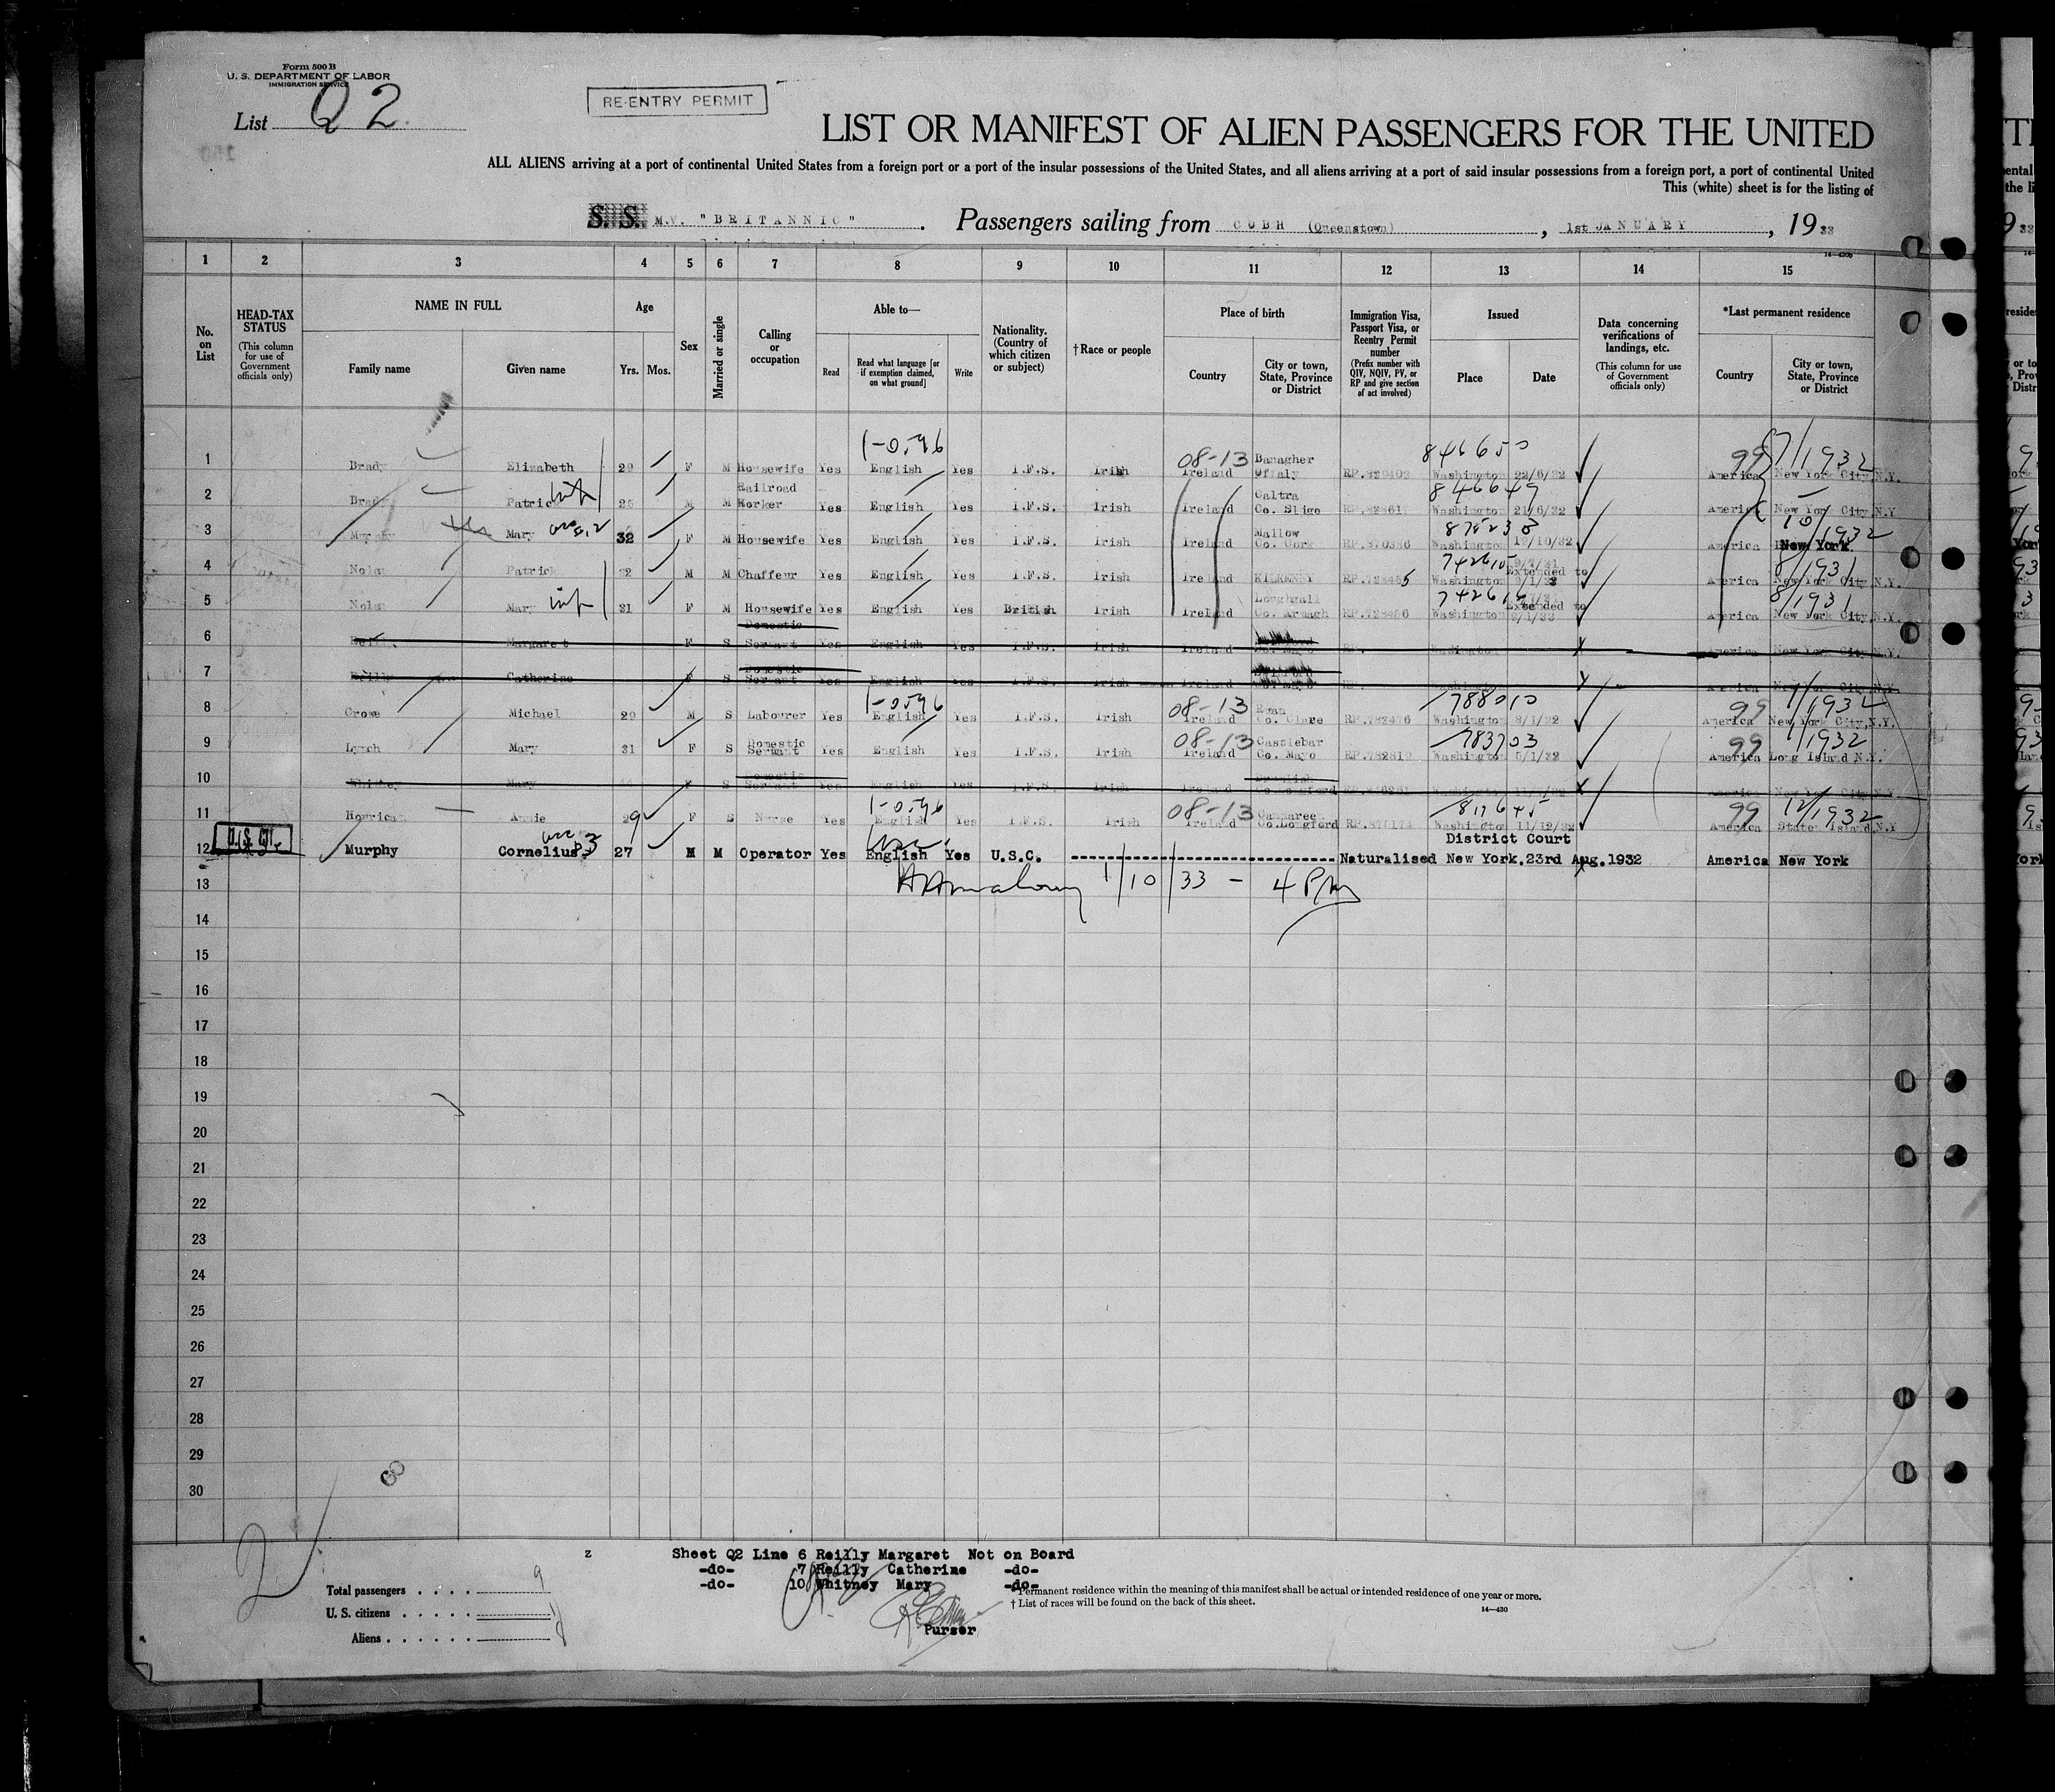 Form 500 B
U. S. DEPARTMENT OF LABOR
IMMIGRATION SERVICE
List Q 2
RE-ENTRY PERMIT
LIST OR MANIFEST OF ALIEN PASSENGERS FOR THE UNITED
ALL ALIENS arriving at a port of continental United States from a foreign port or a port of the insular possessions of the United States, and all aliens arriving at a port of said insular possessions from a foreign port, a port of continental United
This (white) sheet is for the listing of
S. S. M.V. "BRITANNIC". Passengers sailing from COBH (Queenstown), 1st JANUARY, 1933
14-430b
1 2 3 4 5 6 7 8 9 10 11 12 13 14 15
No. on List
HEAD-TAX STATUS
(This column for use of Government officials only)
NAME IN FULL
Family name
Given name
Age
Yrs. Mos.
Sex
Married or single
Calling or occupation
Able to—
Read
Read what language [or if exemption claimed, on what ground]
Write
Nationality. (Country of which citizen or subject)
†Race or people
Place of birth
Country
City or town, State, Province or District
Immigration Visa, Passport Visa, or Reentry Permit number
(Prefix number with QIV, NQIV, PV, or RP and give section of act involved)
Issued
Place
Date
Data concerning verifications of landings, etc.
(This column for use of Government officials only)
*Last permanent residence
Country
City or town, State, Province or District
1-0596 08-13 Banagher 846650 99
1 Brady Elizabeth 29 F M Housewife Yes English Yes I.F.S. Irish Ireland Offaly Washington 22/6/32 America New York City, N.Y.
Railroad Caltra 846649
2 Brady Patrick M M Worker Yes English Yes I.F.S. Irish Ireland Co. Sligo Washington 21/6/32 America New York City, N.Y.
Mallow 10/1932
3 Murphy Mary 32 F M Housewife Yes English Yes I.F.S. Irish Ireland Co. Cork Washington 19/10/32 America New York
8/1931
4 Nolan Patrick M M Chaffeur Yes English Yes I.F.S. Irish Ireland KILKENNY Washington Extended to 9/1/33 America New York City, N.Y.
Loughgall 8/1931
5 Nolan Mary 31 F M Housewife Yes English Yes British Irish Ireland Co. Armagh Washington Extended to 9/1/33 America New York City, N.Y.
Domestic
6 Margaret F S Servant Yes English Yes I.F.S. Irish Ireland Washington America New York City, N.Y.
Domestic
7 Reilly Catherine F S Servant Yes English Yes I.F.S. Irish Ireland America New York City, N.Y.
1-0596 08-13 Ruan 788010 99 1/1932
8 Crowe Michael 29 M S Labourer Yes English Yes I.F.S. Irish Ireland Co. Clare RP.782476 Washington 8/1/32 America New York City, N.Y.
Domestic 08-13 Castlebar 783703 99 1/1932
9 Lynch Mary 31 F S Servant Yes English Yes I.F.S. Irish Ireland Co. Mayo Washington 5/1/32 America Long Island N.Y.
Domestic
10 Whitney Mary F S Servant Yes English Yes I.F.S. Irish Ireland Co. Longford Washington America New York City, N.Y.
1-0596 08-13 99 12/1932
11 Hourican Annie 29 F S Nurse Yes English Yes I.F.S. Irish Ireland Co. Longford Washington 11/12/32 America Staten Island N.Y
District Court
12 Murphy Cornelius 27 M M Operator Yes English Yes U.S.C. Naturalised New York. 23rd Aug. 1932 America New York
13 1/10/33 - 4 PM
14
15
16
17
18
19
20
21
22
23
24
25
26
27
28
29
30
Sheet Q2 Line 6 Reilly Margaret Not on Board
-do- 7 Reilly Catherine -do-
-do- 10 Whitney Mary -do-
Total passengers 9
U. S. citizens 1
Aliens 8
Purser
*Permanent residence within the meaning of this manifest shall be actual or intended residence of one year or more.
† List of races will be found on the back of this sheet.
14—430